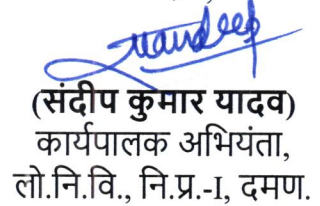 Sandeep
(संदीप कुमार यादव)
कार्यपालक अभियंता,
लो.नि.वि., नि.प्र.-I, दमण.